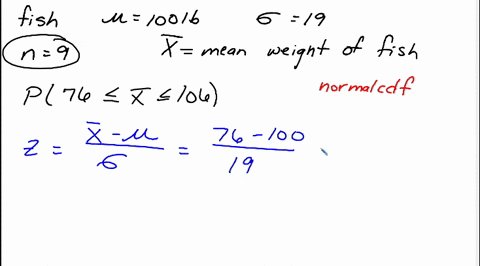 fish μ = 100 lb σ = 19
n = 9 X̄ = mean weight of fish
P(76 ≤ x̄ ≤ 106) normalcdf
Z = X̄ - μ / σ = 76 - 100 / 19